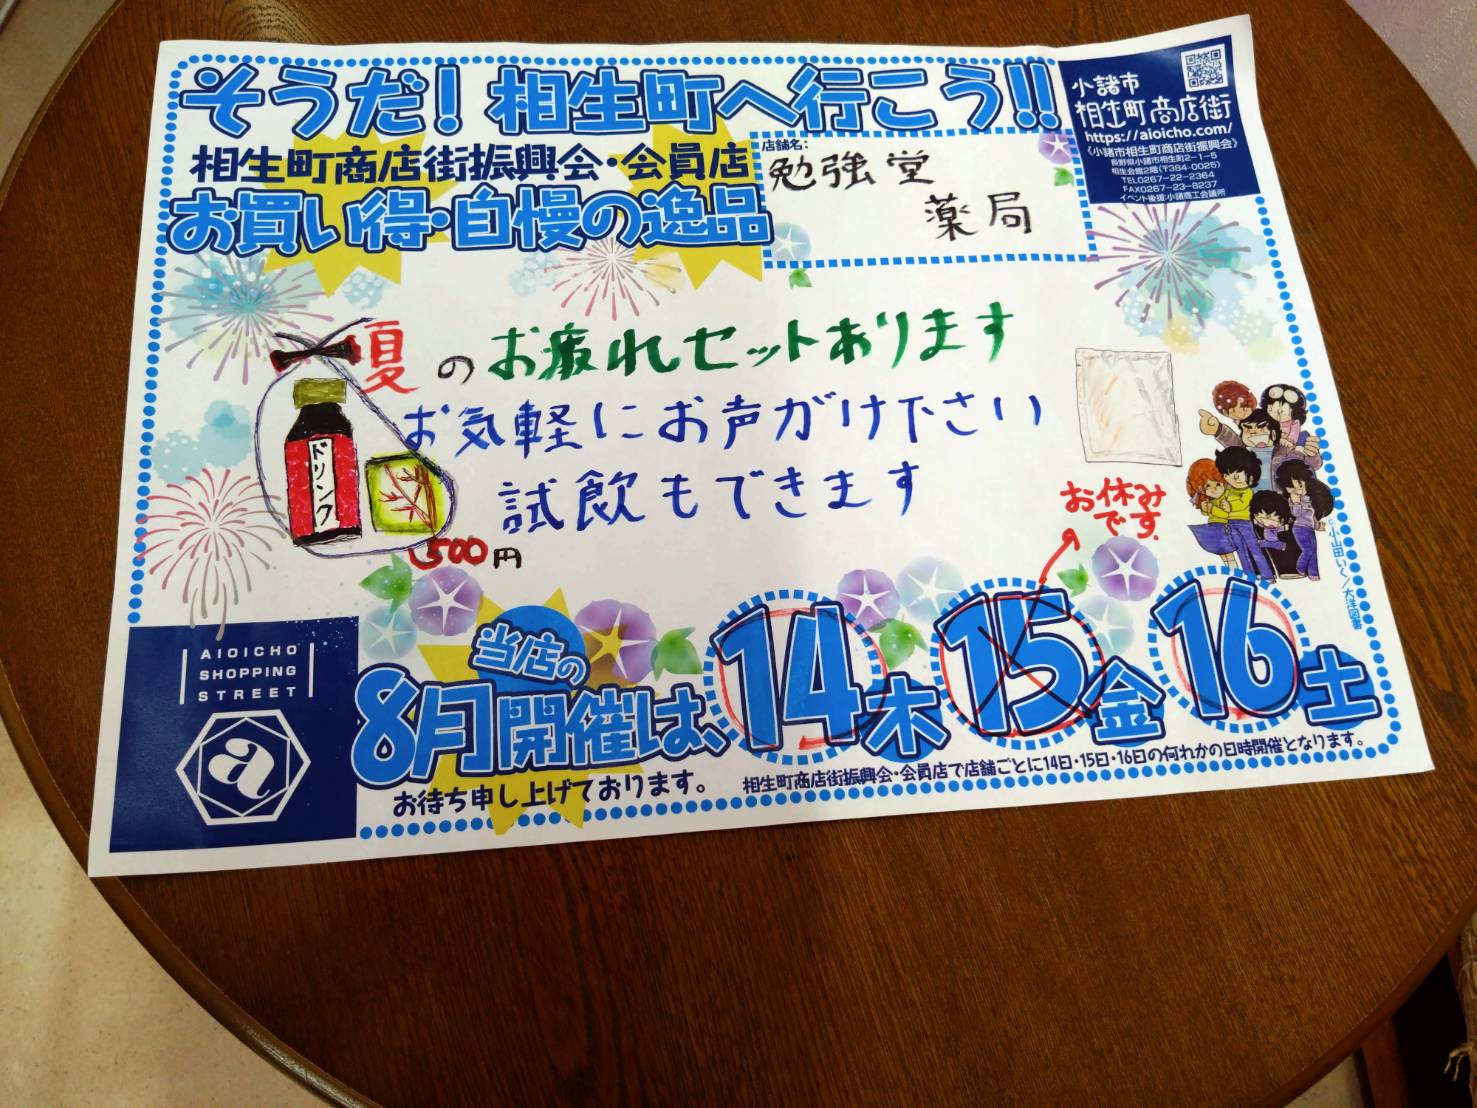 そうだ!相生町へ行こう!!
相生町商店街振興会・会員店
お買い得・自慢の逸品
店舗名:
勉強堂
薬局
小諸市
相生町商店街
https://aioicho.com/
《小諸市相生町商店街振興会》
長野県小諸市相生町2-1-5
相生会館2階(〒384-0025)
TEL0267-22-2364
FAX0267-23-8237
イベント後援:小諸商工会議所
夏のお疲れセットあります
お気軽にお声がけ下さい
試飲もできます
ドリンク
500円
お休み
です.
©小山田いく/大洋図書
AIOICHO
SHOPPING
STREET
a
当店の
8月開催は、14木15金16土
お待ち申し上げております。
相生町商店街振興会・会員店で店舗ごとに14日・15日・16日の何れかの日時開催となります。